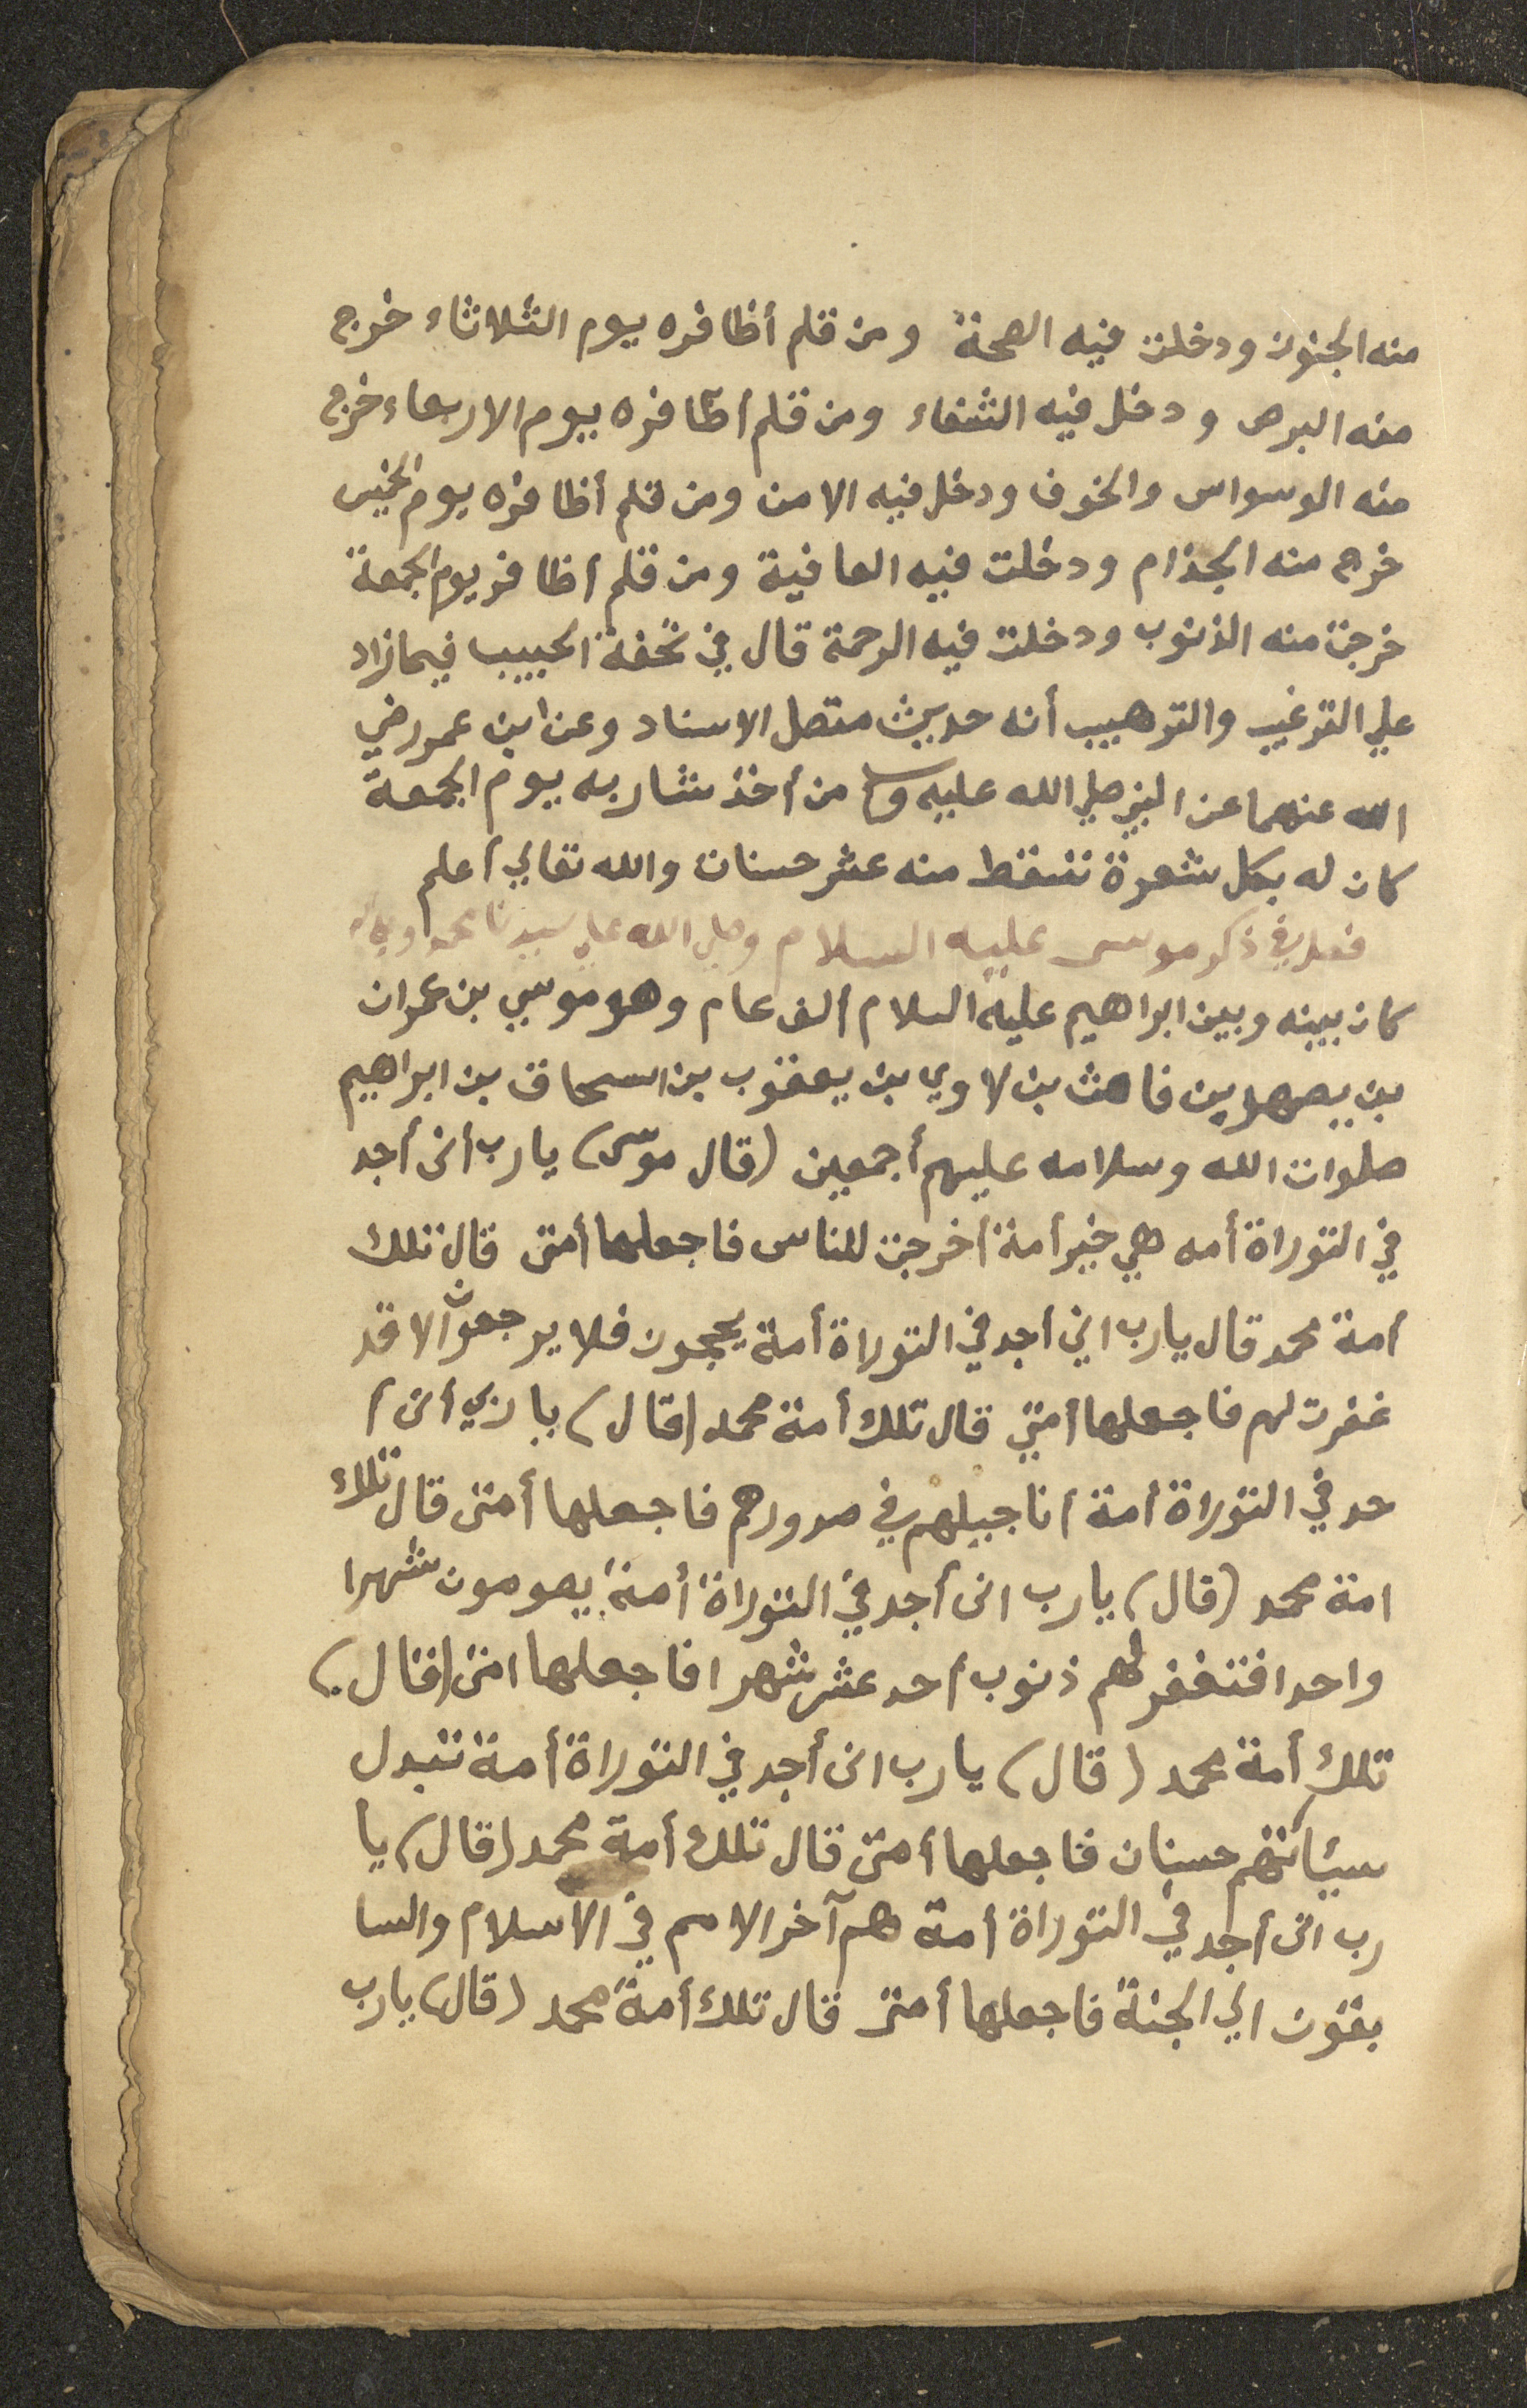 منه الجنون ودخلت فيه الصحة ومن قلم أظافره يوم الثلاثاء خرج
منه البرص ودخل فيه الشفاء ومن قلم أظافره يوم الاربعاء خرج
منه الوسواس والخوف ودخل فيه الامن ومن قلم أظافره يوم الخميس
خرج منه الجذام ودخلت فيه العافية ومن قلم أظافر يوم الجمعة
خرجت منه الذنوب ودخلت فيه الرحمة قال في تحفة الحبيب فيما زاد
علي الترغيب والترهيب أنه حديث متصل الاسناد وعن ابن عمر رضي
الله عنهما عن النبي صلي الله عليه وسلم من أخذ شاربه يوم الجمعة
كان له بكل شعرة تسقط منه عشر حسنات والله تعالي أعلم
فصل في ذكر موسى عليه السلام وصلي الله علي سيدنا محمد
كان بينه وبين ابراهيم عليه السلام ألف عام وهو موسي بن عمران
بن يصهر بن قاهث بن لاوي بن يعقوب بن اسحاق بن ابراهيم
صلوات الله وسلامه عليهم أجمعين (قال موسى) يارب أنى أجد
في التوراة أمه هي خير أمة أخرجت للناس فاجعلها أمتى قال تلك
أمة محمد قال يارب اني أجد في التوراة أمة يحجون فلا يرجعون الا قد
غفرت لهم فاجعلها أمتي قال تلك أمة محمد (قال) ياربي أنى أ
جد في التوراة أمة أناجيلهم في صدورهم فاجعلها أمتى قال تلك
امة محمد (قال) يارب انى أجد في التوراة أمة يصومون شهرا
واحدا فتغفر لهم ذنوب أحد عشر شهرا فاجعلها امتى (قال)
تلك أمة محمد (قال) يارب انى أجد في التوراة أمة تتبدل
سيئاتهم حسنات فاجعلها أمتى قال تلك أمة محمد (قال) يا
رب انى أجد في التوراة أمة هم آخر الامم في الاسلام والسا
بقون الي الجنة فاجعلها أمتى قال تلك أمة محمد (قال) يارب